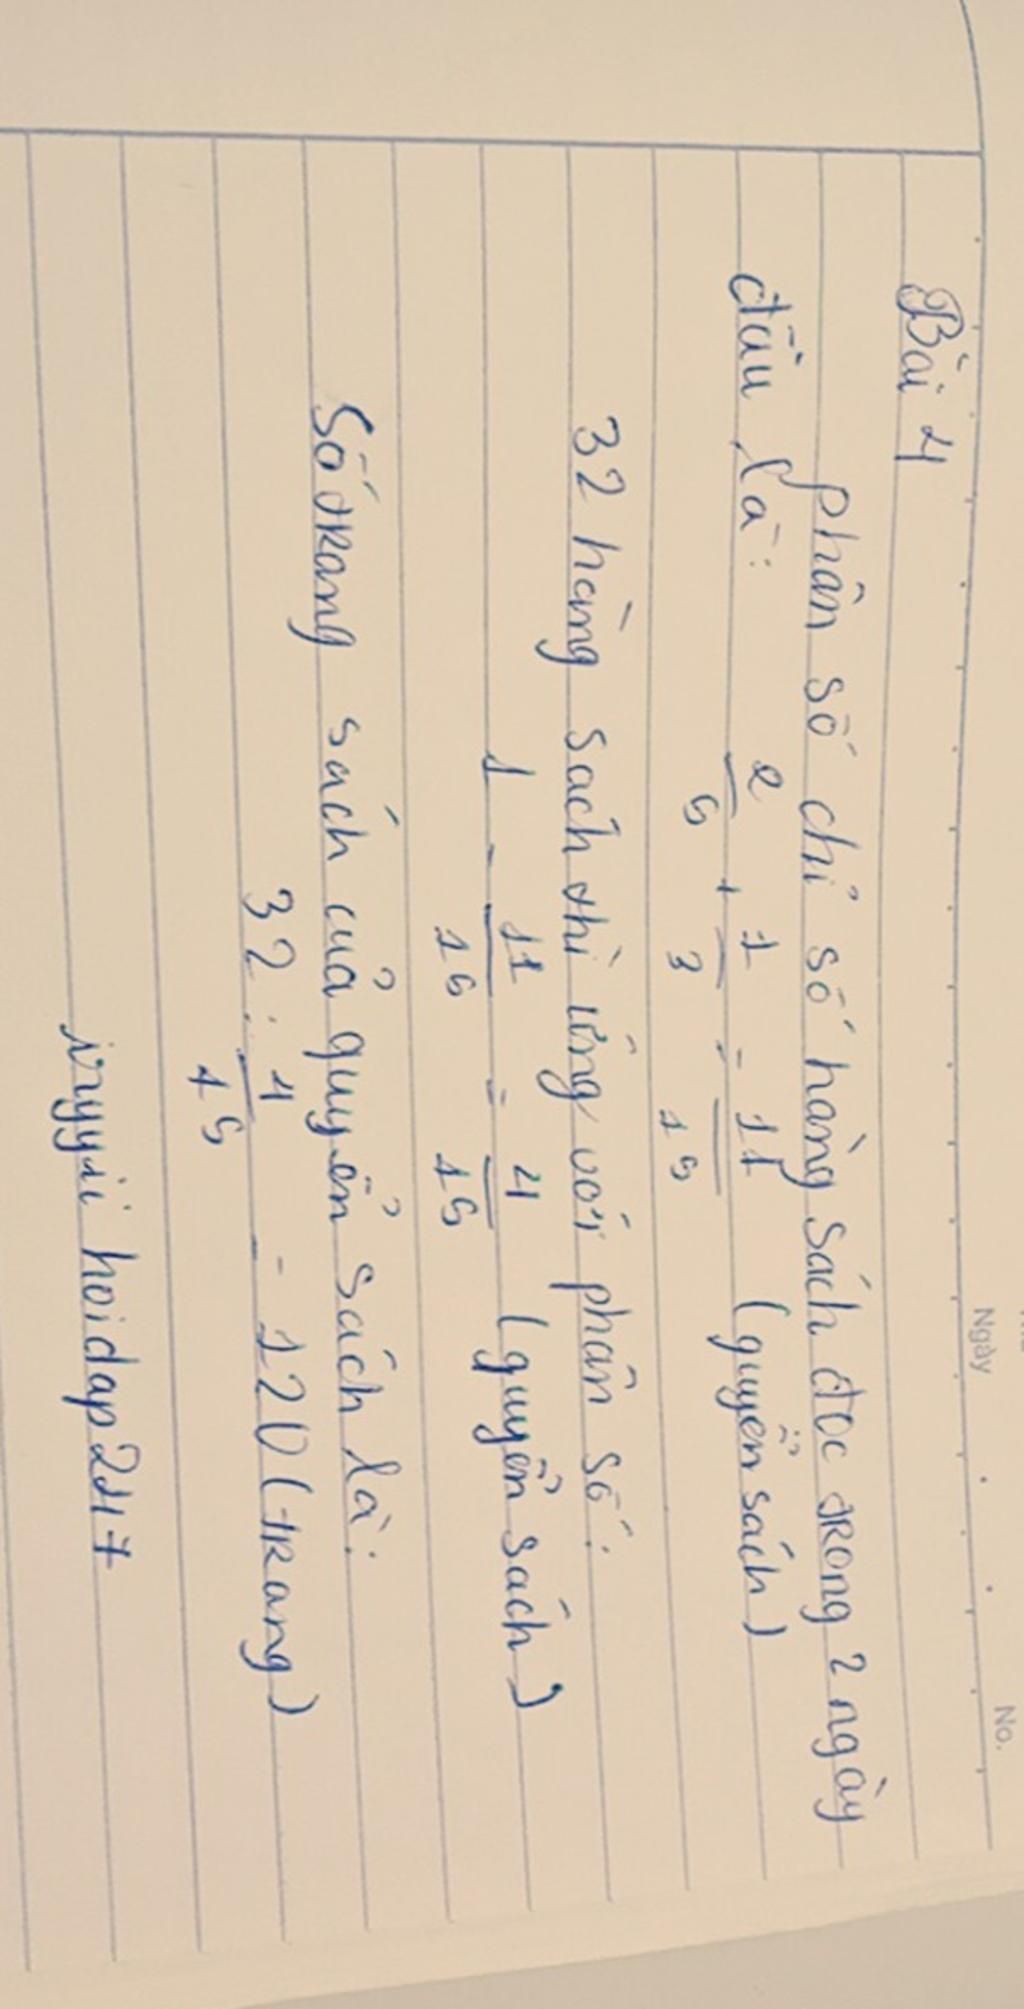 No.
Ngày
Bài 4
phân số chỉ số hàng sách đọc trong 2 ngày
đầu là:
2/5 + 1/3 = 11/15 (quyển sách)
32 hàng sách thì ứng với phân số:
1 - 11/15 = 4/15 (quyển sách)
Số trang sách của quyển sách là:
32 : 4/15 = 120 (trang)
hoidap247